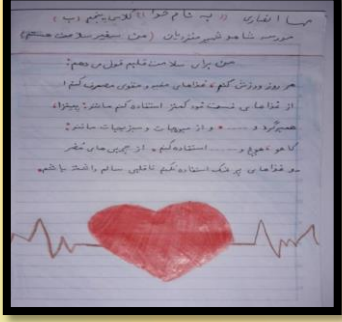 مهسا انصاری // به نام خدا // کلاس پنجم (ب)
مدرسه شاهو شهر مندریان (من سفیر سلامت هستم)
من برای سلامت قلبم قول می دهم:
هر روز ورزش کنم، غذاهای مفید و مقوی مصرف کنم
از غذاهای فست فود کمتر استفاده کنم مانند: پیتزا،
همبرگر و ..... و از میوجات و سبزیجات مانند:
کاهو، هویج و ...... استفاده کنم. از چربی های مضر
و غذاهای پر نمک استفاده نکنم تا قلبی سالم داشته باشم.